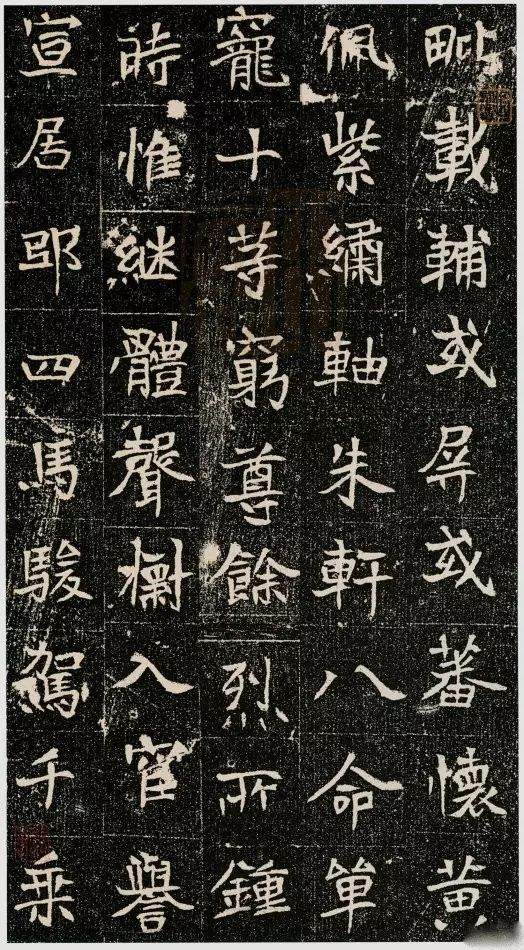 毗載輔或屏或蕃懷黄
佩紫繡軸朱軒八命單
寵十等窮尊餘烈所鍾
時惟継體聲入宦譽
宣居邸四馬駿駕千乗